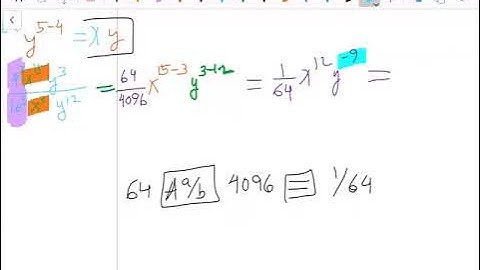 y⁵⁻⁴ = x y
y³
y¹² = 64/4096 x¹⁵⁻³ y³⁻¹² = 1/64 x¹² y⁻⁹ =
64 A a/b 4096 ≡ 1/64